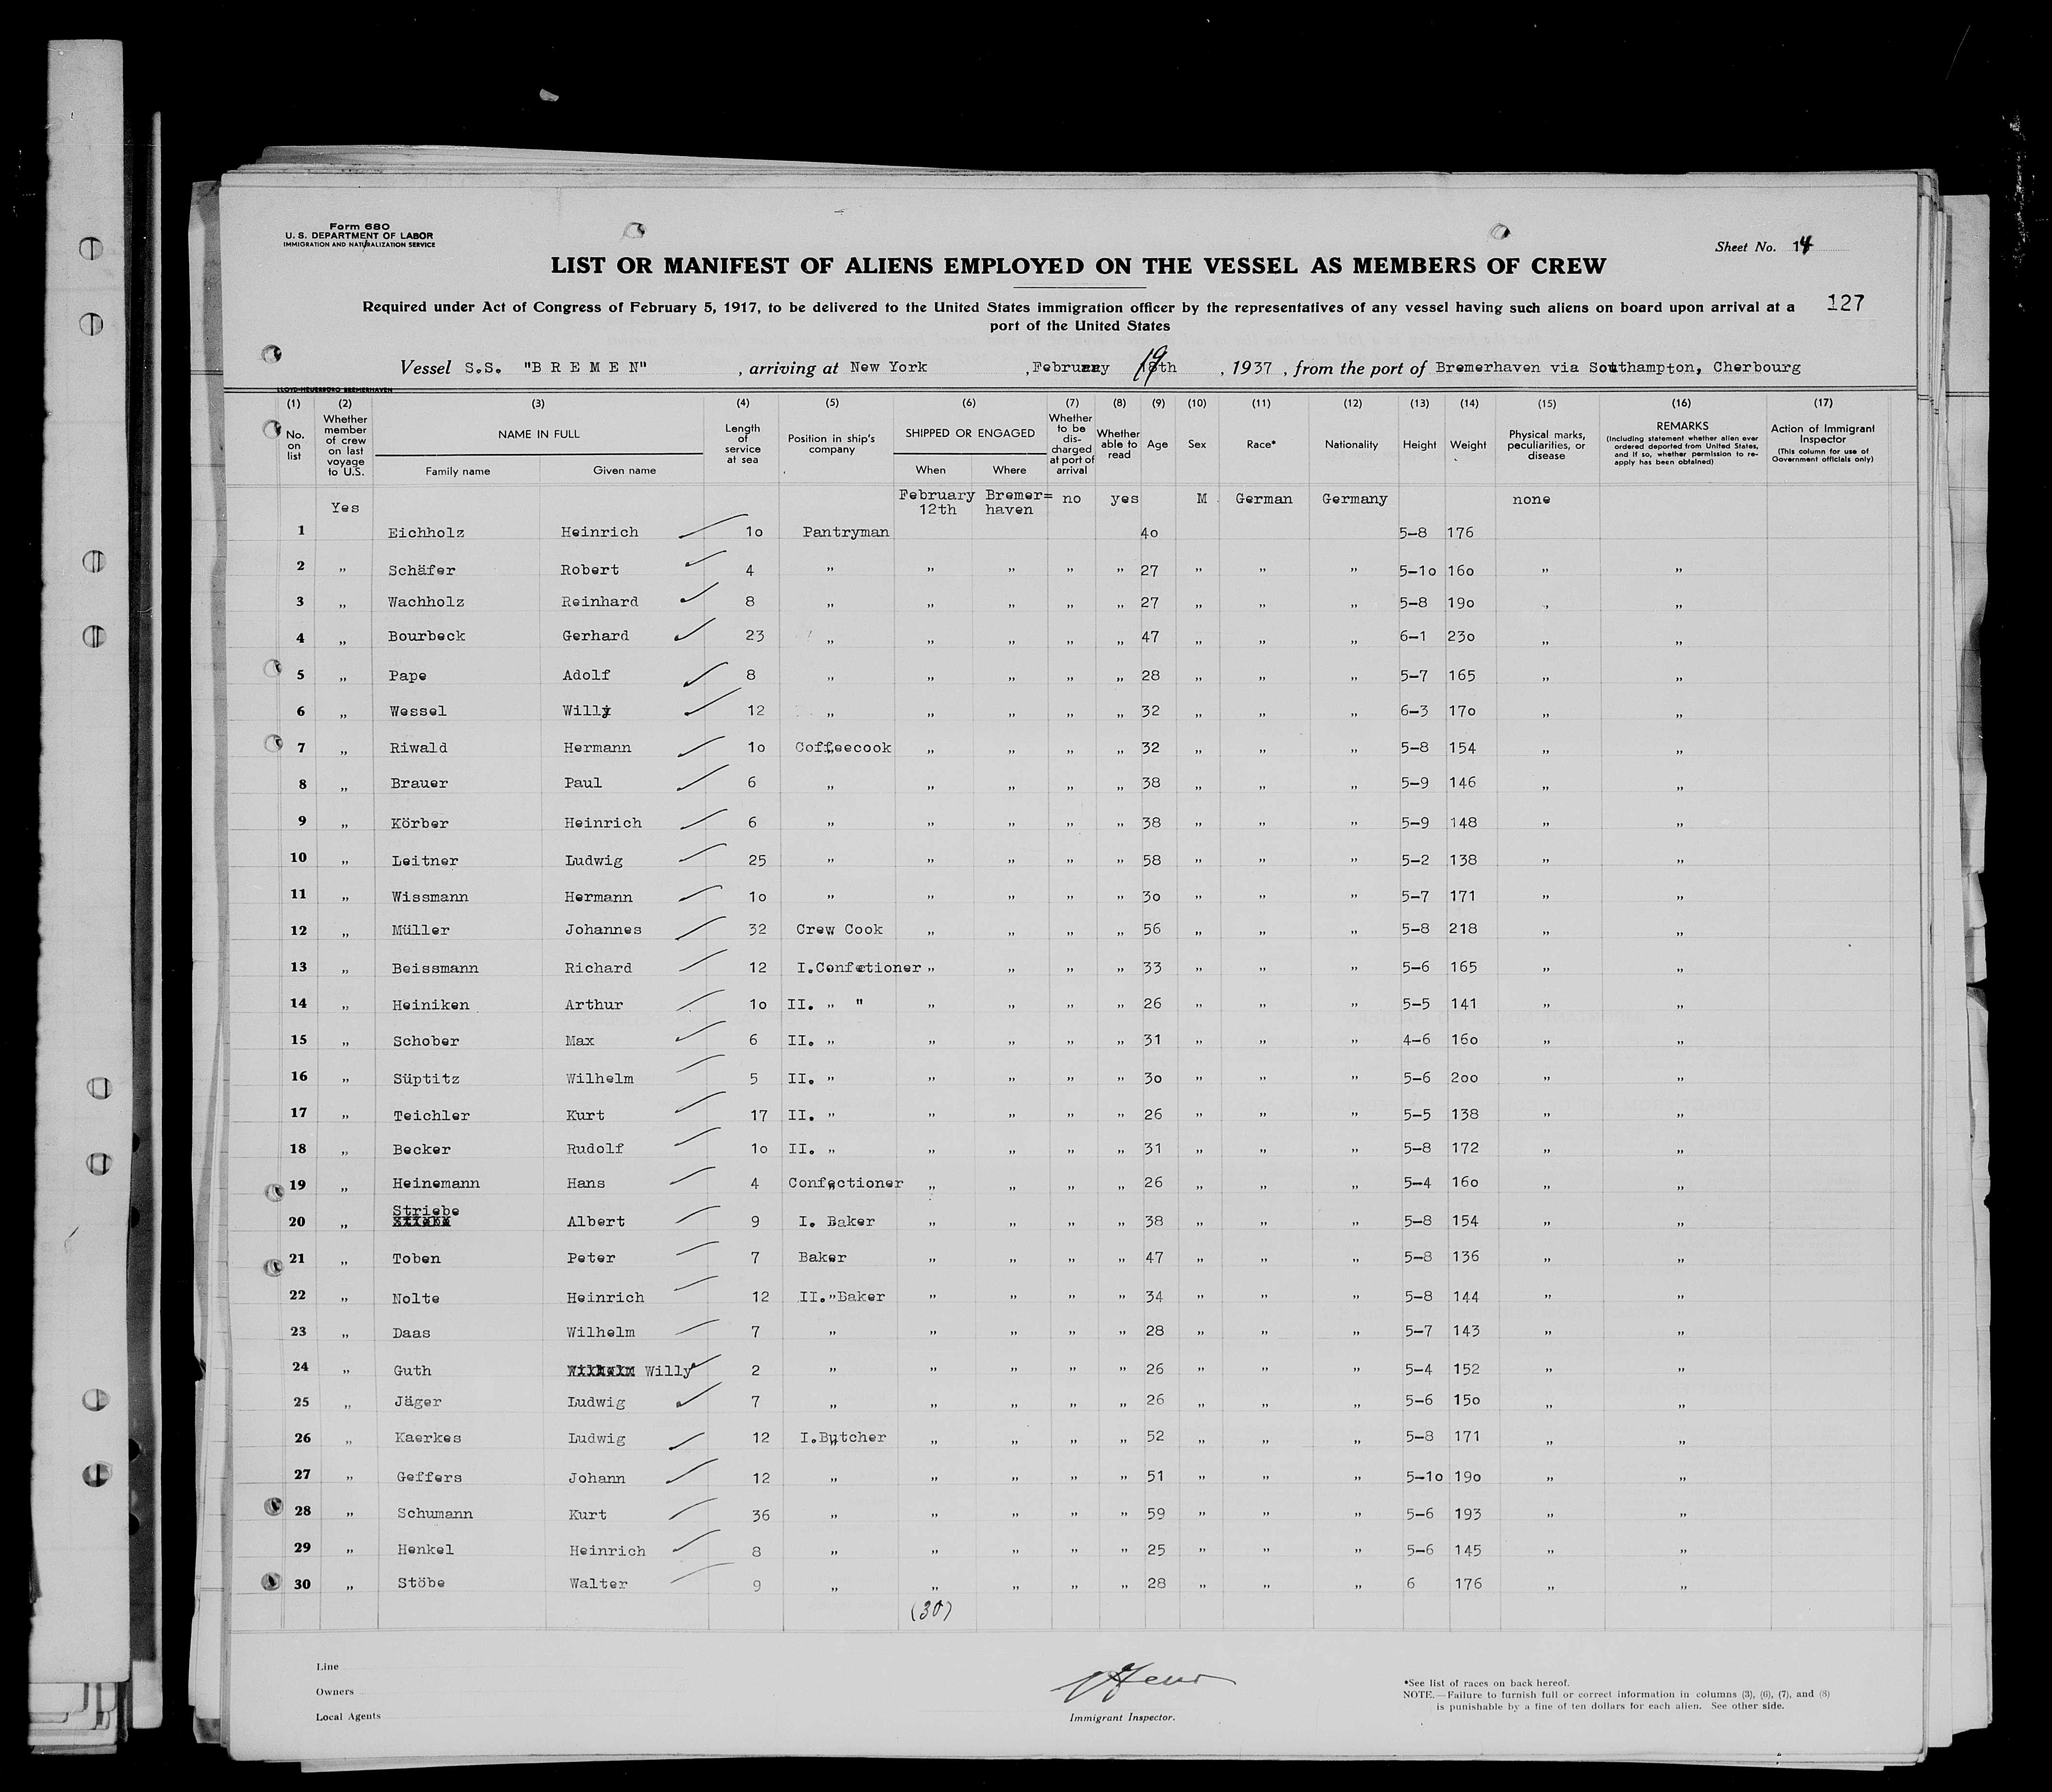 Form 680
U. S. DEPARTMENT OF LABOR
IMMIGRATION AND NATURALIZATION SERVICE
Sheet No. 14
LIST OR MANIFEST OF ALIENS EMPLOYED ON THE VESSEL AS MEMBERS OF CREW
Required under Act of Congress of February 5, 1917, to be delivered to the United States immigration officer by the representatives of any vessel having such aliens on board upon arrival at a
port of the United States
127
Vessel S.S. "B R E M E N" , arriving at New York , February 19th , 1937 , from the port of Bremerhaven via Southampton, Cherbourg
(1) (2) (3) (4) (5) (6) (7) (8) (9) (10) (11) (12) (13) (14) (15) (16) (17)
No. on list
Whether member of crew on last voyage to U.S.
NAME IN FULL
Family name Given name
Length of service at sea
Position in ship's company
SHIPPED OR ENGAGED
When Where
Whether to be dis-charged at port of arrival
Whether able to read
Age
Sex
Race*
Nationality
Height
Weight
Physical marks, peculiarities, or disease
REMARKS
(Including statement whether alien ever ordered deported from United States, and if so, whether permission to re-apply has been obtained)
Action of Immigrant Inspector
(This column for use of Government officials only)
Yes February 12th Bremer=haven no yes M German Germany none
1 Eichholz Heinrich 1o Pantryman 4o 5-8 176
2 „ Schäfer Robert 4 „ „ „ „ „ 27 „ „ „ 5-1o 16o „ „
3 „ Wachholz Reinhard 8 „ „ „ „ „ 27 „ „ „ 5-8 19o „ „
4 „ Bourbeck Gerhard 23 „ „ „ „ „ 47 „ „ „ 6-1 23o „ „
5 „ Pape Adolf 8 „ „ „ „ „ 28 „ „ „ 5-7 165 „ „
6 „ Wessel Willy 12 „ „ „ „ „ 32 „ „ „ 6-3 17o „ „
7 „ Riwald Hermann 1o Coffeecook „ „ „ „ 32 „ „ „ 5-8 154 „ „
8 „ Brauer Paul 6 „ „ „ „ „ 38 „ „ „ 5-9 146 „ „
9 „ Körber Heinrich 6 „ „ „ „ „ 38 „ „ „ 5-9 148 „ „
10 „ Leitner Ludwig 25 „ „ „ „ „ 58 „ „ „ 5-2 138 „ „
11 „ Wissmann Hermann 1o „ „ „ „ „ 3o „ „ „ 5-7 171 „ „
12 „ Müller Johannes 32 Crew Cook „ „ „ „ 56 „ „ „ 5-8 218 „ „
13 „ Beissmann Richard 12 I.Confetioner „ „ „ „ 33 „ „ „ 5-6 165 „ „
14 „ Heiniken Arthur 1o II. „ " „ „ „ „ 26 „ „ „ 5-5 141 „ „
15 „ Schober Max 6 II. „ „ „ „ „ 31 „ „ „ 4-6 16o „ „
16 „ Süptitz Wilhelm 5 II. „ „ „ „ „ 3o „ „ „ 5-6 2oo „ „
17 „ Teichler Kurt 17 II. „ „ „ „ „ 26 „ „ „ 5-5 138 „ „
18 „ Becker Rudolf 1o II. „ „ „ „ „ 31 „ „ „ 5-8 172 „ „
19 „ Heinemann Hans 4 Confectioner „ „ „ „ 26 „ „ „ 5-4 16o „ „
20 „ Striebe Albert 9 I. Baker „ „ „ „ 38 „ „ „ 5-8 154 „ „
21 „ Toben Peter 7 Baker „ „ „ „ 47 „ „ „ 5-8 136 „ „
22 „ Nolte Heinrich 12 II.„Baker „ „ „ „ 34 „ „ „ 5-8 144 „ „
23 „ Daas Wilhelm 7 „ „ „ „ „ 28 „ „ „ 5-7 143 „ „
24 „ Guth Wilhelm Willy 2 „ „ „ „ „ 26 „ „ „ 5-4 152 „ „
25 „ Jäger Ludwig 7 „ „ „ „ „ 26 „ „ „ 5-6 15o „ „
26 „ Kaerkes Ludwig 12 I.Butcher „ „ „ „ 52 „ „ „ 5-8 171 „ „
27 „ Geffers Johann 12 „ „ „ „ „ 51 „ „ „ 5-1o 19o „ „
28 „ Schumann Kurt 36 „ „ „ „ „ 59 „ „ „ 5-6 193 „ „
29 „ Henkel Heinrich 8 „ „ „ „ „ 25 „ „ „ 5-6 145 „ „
30 „ Stöbe Walter 9 „ „ „ „ „ 28 „ „ „ 6 176 „ „
(30)
Line
Owners
Local Agents
Immigrant Inspector.
*See list of races on back hereof.
NOTE.—Failure to furnish full or correct information in columns (3), (6), (7), and (8)
is punishable by a fine of ten dollars for each alien. See other side.